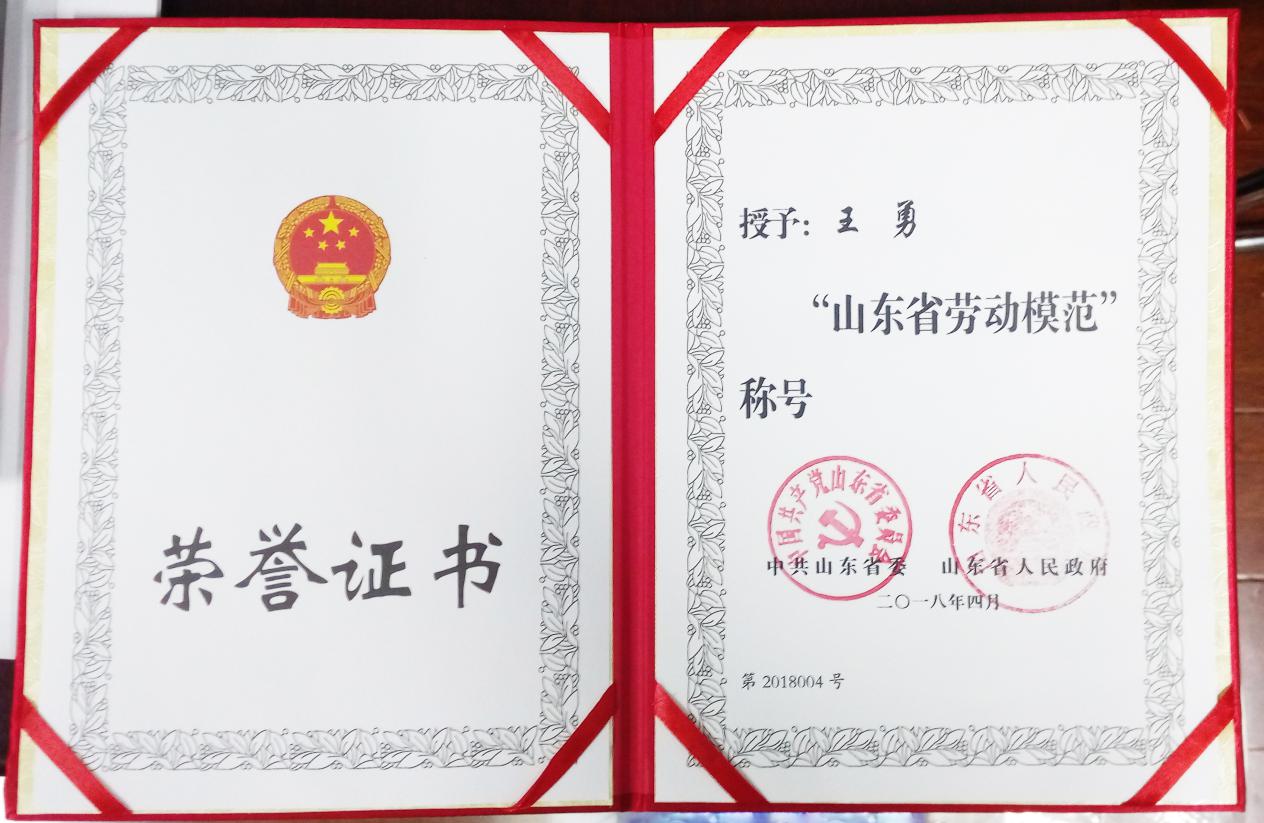 荣誉证书
授予：王 勇
“山东省劳动模范”
称号
中国共产党山东省委员会
山东省人民政府
中共山东省委 山东省人民政府
二〇一八年四月
第 2018004 号